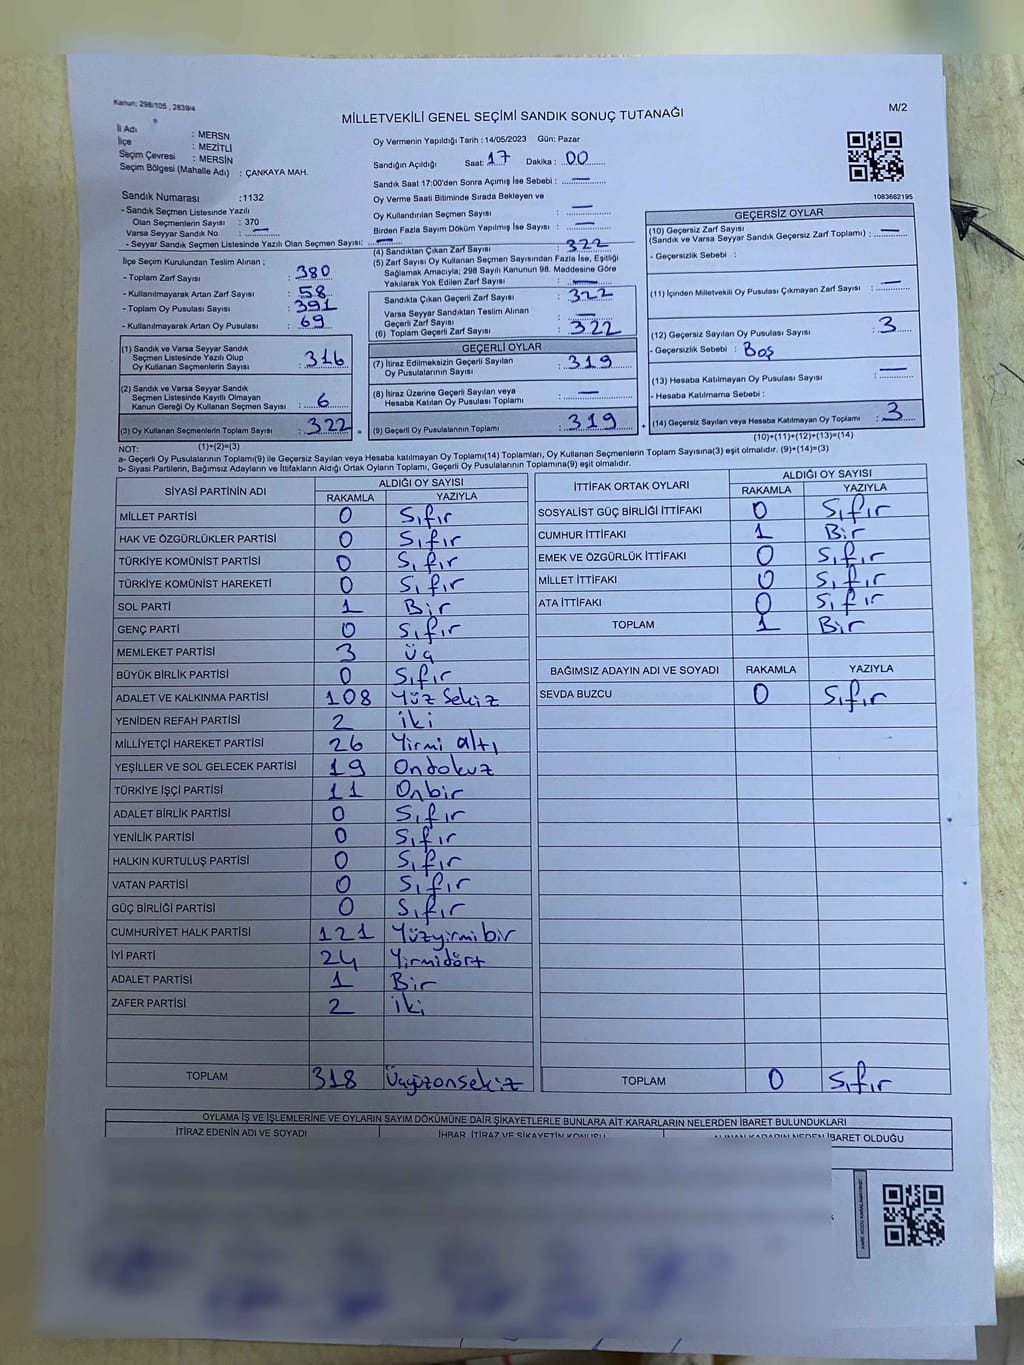 Kanun; 298/105 , 2839/4
MİLLETVEKİLİ GENEL SEÇİMİ SANDIK SONUÇ TUTANAĞI
M/2
İl Adı : MERSN
İlçe : MEZİTLİ
Seçim Çevresi : MERSİN
Seçim Bölgesi (Mahalle Adı) : ÇANKAYA MAH.
Oy Vermenin Yapıldığı Tarih : 14/05/2023 Gün: Pazar
Sandığın Açıldığı Saat: 17 Dakika : 00
Sandık Saat 17:00'den Sonra Açımış İse Sebebi : —
Oy Verme Saati Bitiminde Sırada Bekleyen ve
Oy Kullandırılan Seçmen Sayısı : —
Birden Fazla Sayım Döküm Yapılmış İse Sayısı : —
1083662195
Sandık Numarası :1132
- Sandık Seçmen Listesinde Yazılı
Olan Seçmenlerin Sayısı : 370
Varsa Seyyar Sandık No : —
- Seyyar Sandık Seçmen Listesinde Yazılı Olan Seçmen Sayısı: —
İlçe Seçim Kurulundan Teslim Alınan ;
- Toplam Zarf Sayısı : 380
- Kullanılmayarak Artan Zarf Sayısı : 58
- Toplam Oy Pusulası Sayısı : 391
- Kullanılmayarak Artan Oy Pusulası : 69
(1) Sandık ve Varsa Seyyar Sandık
Seçmen Listesinde Yazılı Olup
Oy Kullanan Seçmenlerin Sayısı : 316
(2) Sandık ve Varsa Seyyar Sandık
Seçmen Listesinde Kayıtlı Olmayan
Kanun Gereği Oy Kullanan Seçmen Sayısı : 6
(3) Oy Kullanan Seçmenlerin Toplam Sayısı : 322
(4) Sandıktan Çıkan Zarf Sayısı : 322
(5) Zarf Sayısı Oy Kullanan Seçmen Sayısından Fazla İse, Eşitliği
Sağlamak Amacıyla; 298 Sayılı Kanunun 98. Maddesine Göre
Yakılarak Yok Edilen Zarf Sayısı : —
Sandıkta Çıkan Geçerli Zarf Sayısı : 322
Varsa Seyyar Sandıktan Teslim Alınan
Geçerli Zarf Sayısı : —
(6) Toplam Geçerli Zarf Sayısı : 322
GEÇERLİ OYLAR
(7) İtiraz Edilmeksizin Geçerli Sayılan
Oy Pusulalarının Sayısı : 319
(8) İtiraz Üzerine Geçerli Sayılan veya
Hesaba Katılan Oy Pusulası Toplamı : —
= (9) Geçerli Oy Pusulalarının Toplamı : 319
GEÇERSİZ OYLAR
(10) Geçersiz Zarf Sayısı
(Sandık ve Varsa Seyyar Sandık Geçersiz Zarf Toplamı) : —
- Geçersizlik Sebebi :
(11) İçinden Milletvekili Oy Pusulası Çıkmayan Zarf Sayısı : —
(12) Geçersiz Sayılan Oy Pusulası Sayısı : 3
- Geçersizlik Sebebi : Boş
(13) Hesaba Katılmayan Oy Pusulası Sayısı : —
- Hesaba Katılmama Sebebi :
+ (14) Geçersiz Sayılan veya Hesaba Katılmayan Oy Toplamı : 3
NOT: (1)+(2)=(3)
(10)+(11)+(12)+(13)=(14)
a- Geçerli Oy Pusulaları Toplamı(9) ile Geçersiz Sayılan veya Hesaba katılmayan Oy Toplamı(14) Toplamları, Oy Kullanan Seçmenlerin Toplam Sayısına(3) eşit olmalıdır. (9)+(14)=(3)
b- Siyasi Partilerin, Bağımsız Adayların ve İttifakların Aldığı Ortak Oyların Toplamı, Geçerli Oy Pusulalarının Toplamına(9) eşit olmalıdır.
SİYASİ PARTİNİN ADI ALDIĞI OY SAYISI
RAKAMLA YAZIYLA
MİLLET PARTİSİ 0 Sıfır
HAK VE ÖZGÜRLÜKLER PARTİSİ 0 Sıfır
TÜRKİYE KOMÜNİST PARTİSİ 0 Sıfır
TÜRKİYE KOMÜNİST HAREKETİ 0 Sıfır
SOL PARTİ 1 Bir
GENÇ PARTİ 0 Sıfır
MEMLEKET PARTİSİ 3 üç
BÜYÜK BİRLİK PARTİSİ 0 Sıfır
ADALET VE KALKINMA PARTİSİ 108 Yüz Sekiz
YENİDEN REFAH PARTİSİ 2 iki
MİLLİYETÇİ HAREKET PARTİSİ 26 Yirmi altı
YEŞİLLER VE SOL GELECEK PARTİSİ 19 Ondokuz
TÜRKİYE İŞÇİ PARTİSİ 11 Onbir
ADALET BİRLİK PARTİSİ 0 Sıfır
YENİLİK PARTİSİ 0 Sıfır
HALKIN KURTULUŞ PARTİSİ 0 Sıfır
VATAN PARTİSİ 0 Sıfır
GÜÇ BİRLİĞİ PARTİSİ 0 Sıfır
CUMHURİYET HALK PARTİSİ 121 Yüzyirmibir
İYİ PARTİ 24 Yirmidört
ADALET PARTİSİ 1 Bir
ZAFER PARTİSİ 2 iki
TOPLAM 318 Üçyüzonsekiz
İTTİFAK ORTAK OYLARI ALDIĞI OY SAYISI
RAKAMLA YAZIYLA
SOSYALİST GÜÇ BİRLİĞİ İTTİFAKI 0 Sıfır
CUMHUR İTTİFAKI 1 Bir
EMEK VE ÖZGÜRLÜK İTTİFAKI 0 Sıfır
MİLLET İTTİFAKI 0 Sıfır
ATA İTTİFAKI 0 Sıfır
TOPLAM 1 Bir
BAĞIMSIZ ADAYIN ADI VE SOYADI RAKAMLA YAZIYLA
SEVDA BUZCU 0 Sıfır
TOPLAM 0 Sıfır
OYLAMA İŞ VE İŞLEMLERİNE VE OYLARIN SAYIM DÖKÜMÜNE DAİR ŞİKAYETLERLE BUNLARA AİT KARARLARIN NELERDEN İBARET BULUNDUKLARI
İTİRAZ EDENİN ADI VE SOYADI İHBAR, İTİRAZ VE ŞİKAYETİN KONUSU ALINAN KARARIN NEDEN İBARET OLDUĞU